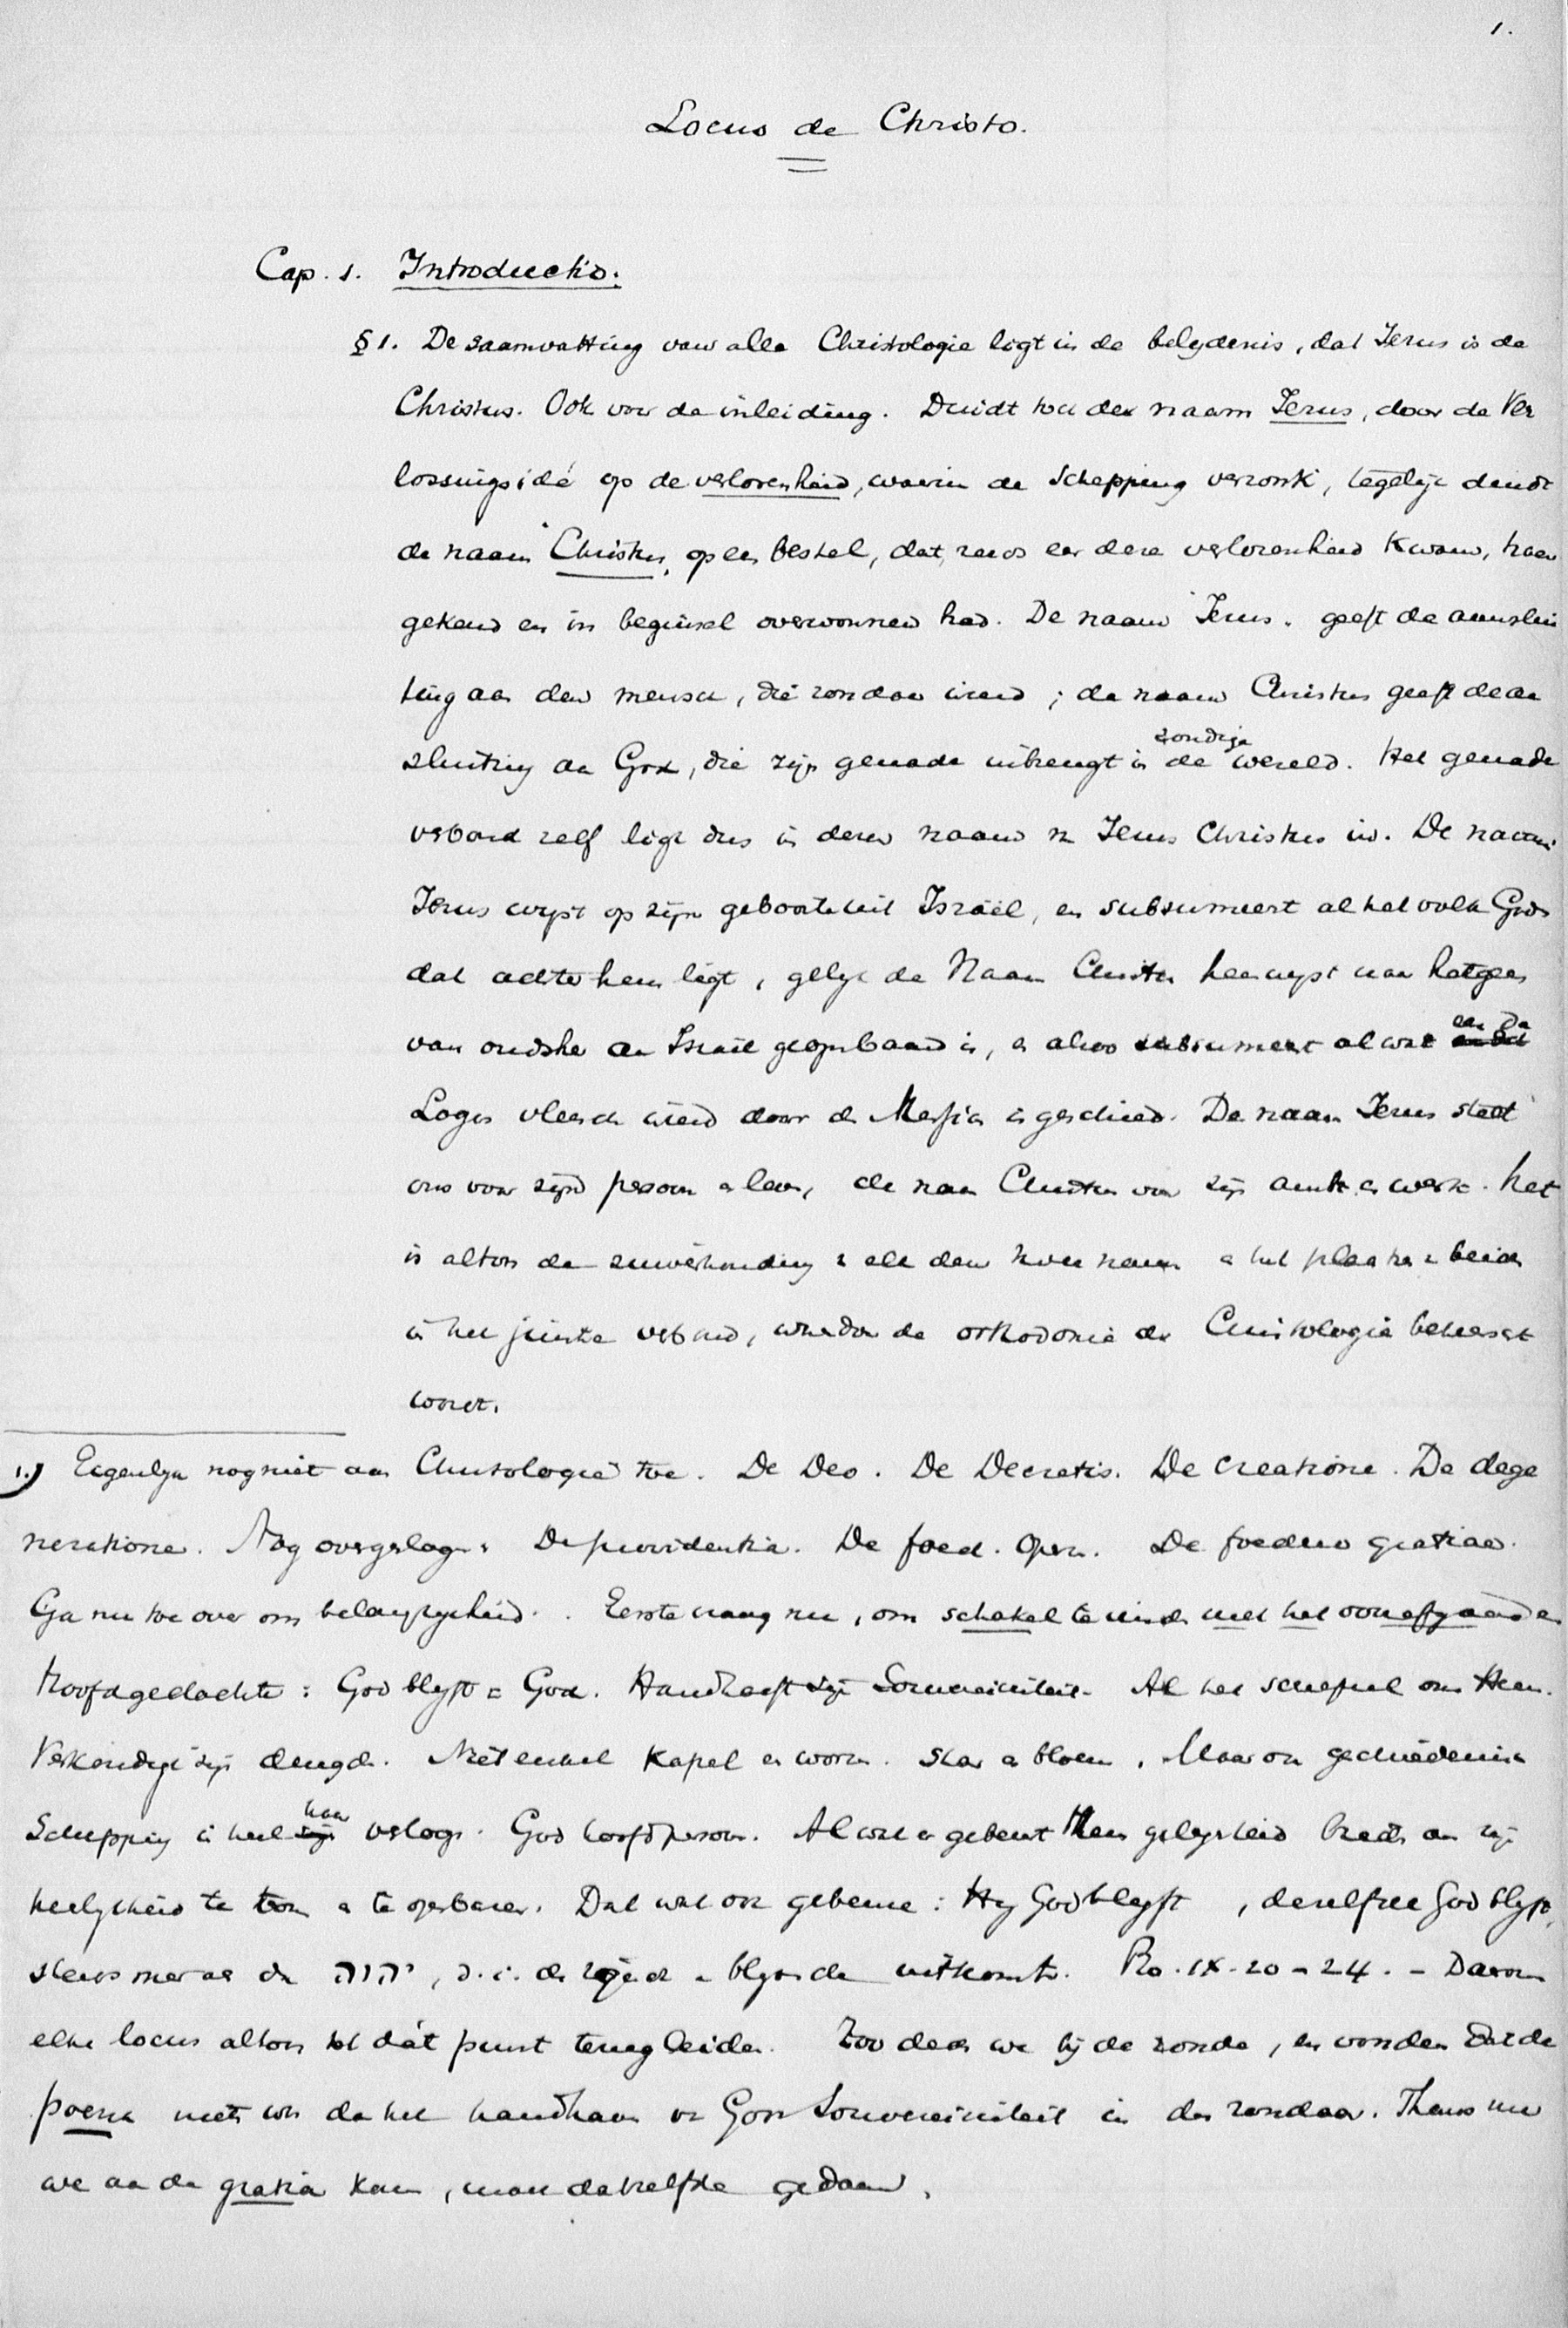 1.
Locus de Christo.
Cap. 1. Introductio.
§ 1. De saamvatting van alle Christologie ligt in de belydenis, dat Jezus is de
Christus. Ook voor de inleiding. Duidt toch der naam Jezus, door de Ver
lossingsidé op de verlorenheid, waarin de schepping verzonk, tegelijk duidt
de naam Christus, op een bestel, dat, reeds eer deze verlorenheid kwam, haar
gekend en in beginsel overwonnen had. De naam Jezus. geeft de aanslui
ting aan den mensch, die zondaar werd; de naam Christus geeft de aan
sluiting aan God, die zijn genade inbrengt in de zondige wereld. Het genade
verbond zelf ligt dus in dezen naam van Jezus Christus in. De naam
Jezus wyst op zijn geboorte uit Israël, en subsumeert al het volk Gods
dat achter hem ligt, gelyk de Naam Christus heenwyst naar hetgeen
van oudsher aan Israël geopenbaard is, en alzoo subsumeert al wat eer de
Logos vleesch werd door de Messias is geschied. De naam Jezus stelt
ons voor zijn persoon en leven, de naam Christus voor zijn ambt en werk. Het
is altoos de zuivere houding van elk dezer twee namen en het plaatsen van beide
in het juiste verband, waardoor de orthodoxie der Christologie beheerscht
wordt.
1.) Eigenlyk nog niet aan Christologie toe. De Deo. De Decretis. De Creatione. De dege
neratione. Nog overgeslagen: De providentia. De foed. oper. De foedere gratiae.
Ga nu toe over om belangrykheid. Eerste vraag nu, om schakel te vinden met het voorafgaande
Hoofdgedachte: God blyft = God. Handhaaft zijn Souvereiniteit. Al het schepsel om Hem.
Verkondigt zijn deugden. Niet enkel kapel en worm. star en bloem. Maar ook geschiedenis
Schepping in heel haar verloop. God hoofdpersoon. Al wat er gebeurt Hem gelegenheid biedt om zijn
heerlykheid te toonen en te openbaren. Dat wat ook gebeure: Hy God blyft, dezelfde God blyft,
steeds meer als de יהוה, d.i. de zijnde en blyvende uitkomt. Ro. IX. 20 - 24. - Daarom
elke locus altoos tot dát punt terug leiden. Zoo deden we bij de zonde, en vonden dat de
poena niets was dan het handhaven van Gods Souvereiniteit in den zondaar. Thans nu
we aan de gratia komen, moet datzelfde gedaan.